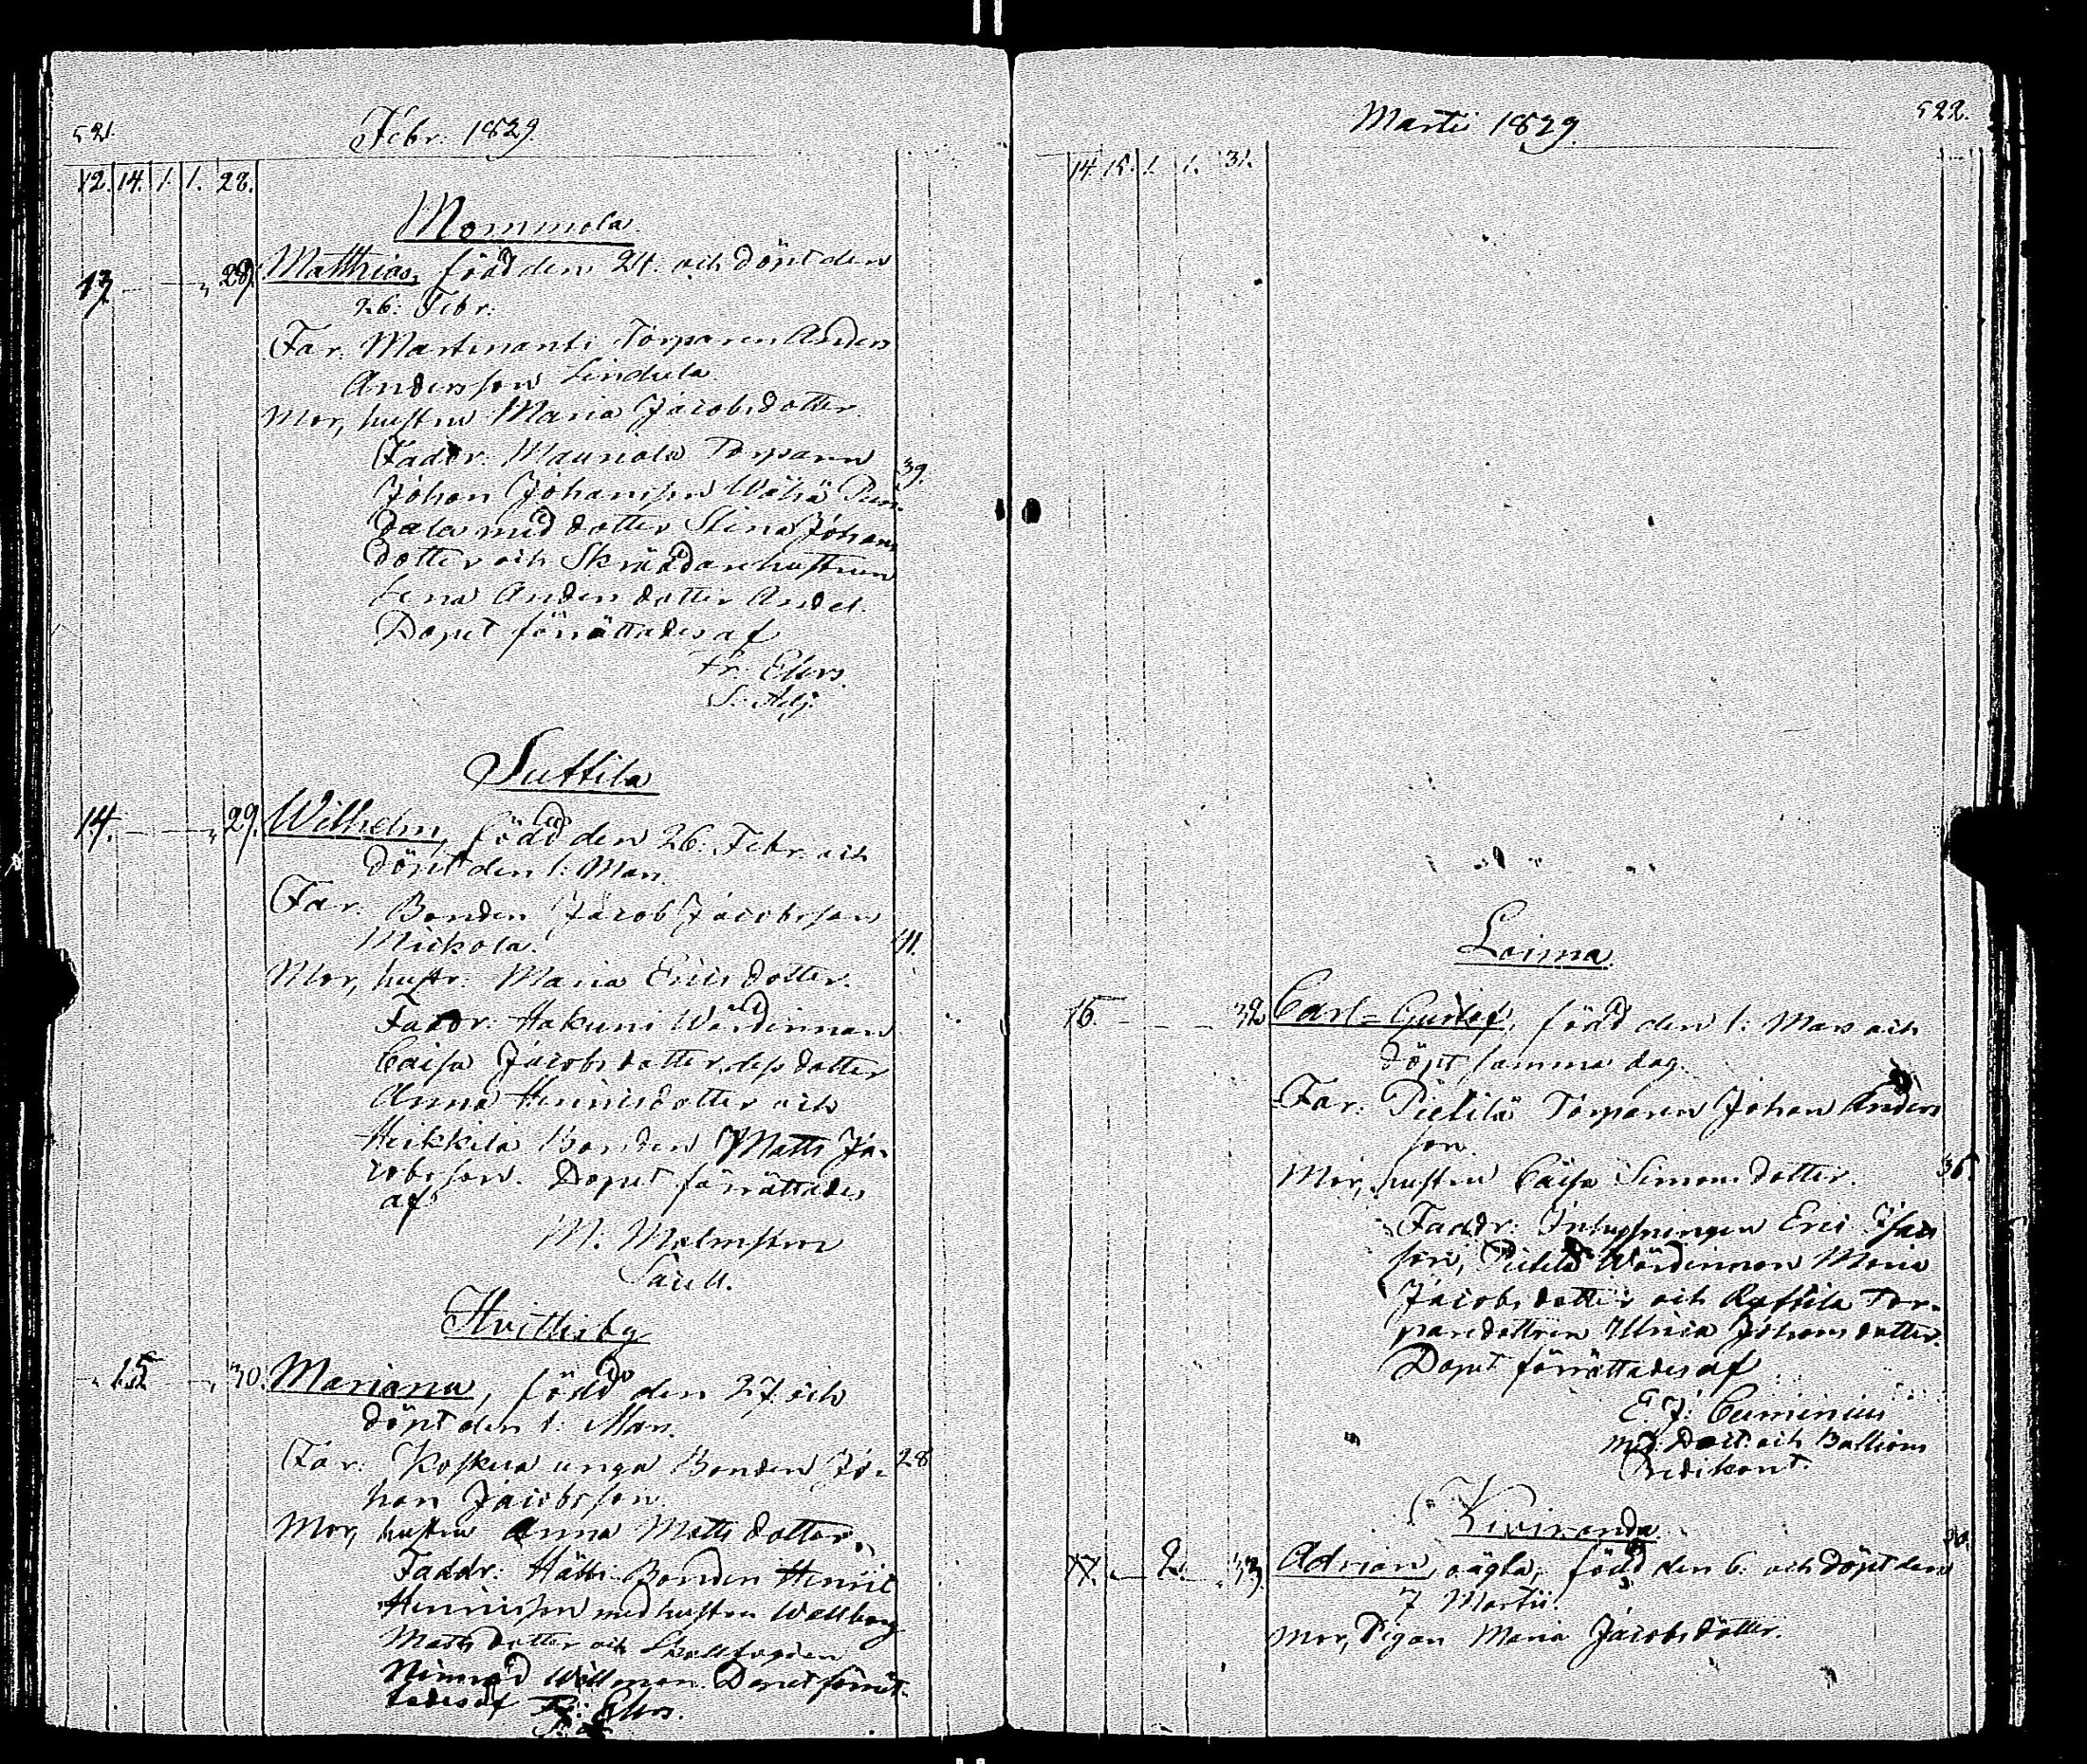 521.
Febr. 1829.
12. 14. 1. 1. 28.
Mommola
13. 28. Matthias, född den 24. och döpt den
26. Febr.
Far: Martinanti Torparen Anders
Andersson Lindula
Mor, hustru Maria Jacobsdotter.
Faddr. Mauriola Torparen 39.
Johan Johansson Wähä
med dotter Stina Johans
dotter och Skräddarehustrun
Lena Anders dotter
Dopet förrättades af
Fr. Elers.
S. Adj.
Suttila
14. 29. Wilhelm, född den 26. Febr. och
döpt den 1. Mars.
Far. Bonden Jacob Jacobsson
Mickola. 41.
Mor, hustr. Maria Ericsdotter.
Faddr. Hakuni Wärdinnan
Caisa Jacobsdotter, dess dotter
Anna Henricsdotter och
Heikkilä Bonden Matts Ja-
cobsson. Dopet förrättades
af
M. Malmström
Sacell.
Hvittisby
15 30. Mariana, född den 27. och
döpt den 1. Mars.
Far. Koskua unga Bonden Jo- 28
han Jacobsson.
Mor, hustru Anna Mattsdotter.
Faddr. Hätti Bonden Henric
Henricsson med hustru Wallborg
Mattsdotter och
Willman. Dopet förrät-
tades af Fr. Elers.
522.
Martii 1829.
14. 15. 1. 1. 31.
Loima
15. 32 Carl-Gustaf, född den 1. Mars och
döpt samma dag.
Far: Pietilä Torparen Johan Anders
son.
Mor, hustru Caisa Simonsdotter. 36.
Faddr. Inhysningen Eric Isacs
son, Pietilä Wärdinnan Maria
Jacobsdotter och Tor-
paredottren Ulrica Johansdotter.
Dopet förrättades af
E. J. Cuminius
Past. och Battlions
Predikant.
Kiviranda
2. 33. Adrian, oägta, född den 6. och döpt den
7 Martii.
Mor, Pigan Maria Jacobsdotter.